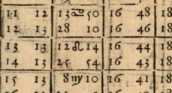 11 12 13♎50 16 48 18
12 13 28 10 16 46 18
13 13 12♌14 16 44 18
14 13 25 54 16 43 18
15 13 8♍10 16 41 18